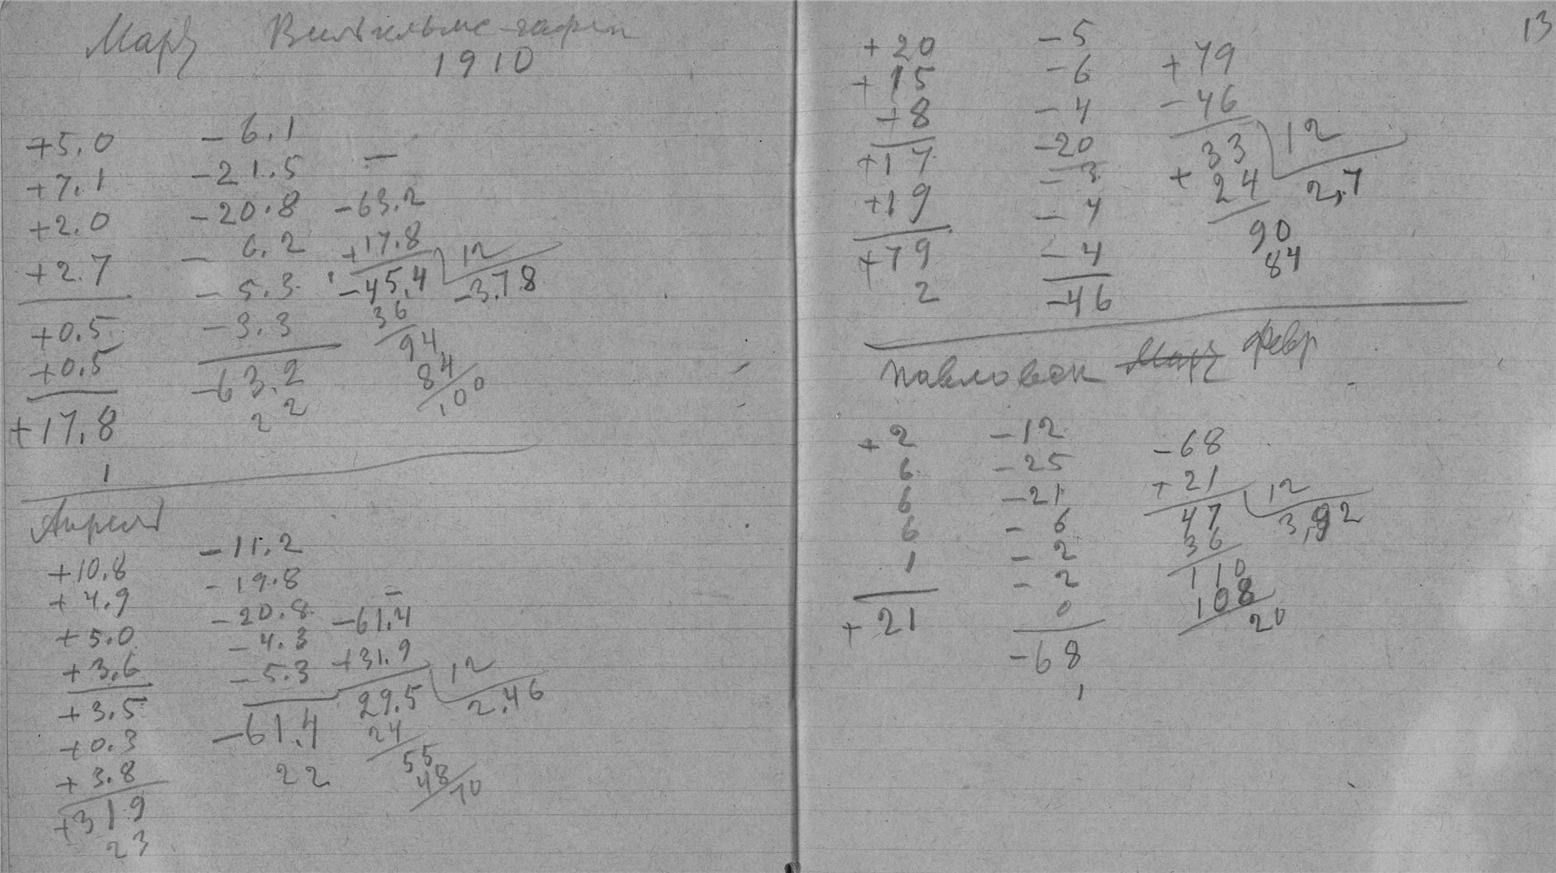 Март Вильгельмс-гафен
1910
+5.0
+7.1
+2.0
+2.7
+0.5
+0.5
+17.8
1
-6.1
-21.5
-20.8
-6.2
-5.3
-3.3
-63.2
22
-
-63.2
+17.8
-45.4 12
-3.78
36
94
84
100
Апрель
+10.8
+4.9
+5.0
+3.6
+3.5
+0.3
+3.8
+319
23
-11.2
-19.8
-20.8
-4.3
-5.3
-61.4
22
-
-61.4
+31.9
29.5 12
2.46
24
55
48
70
13
+20
+15
+8
+17
+19
+79
2
-5
-6
-4
-20
-3
-4
-4
-46
+79
-46
+33 12
24 2,7
90
84
Павловск Март Февр
+2
6
6
6
1
+21
-12
-25
-21
-6
-2
-2
0
-68
1
-68
+21
47 12
36 3,92
110
108
20